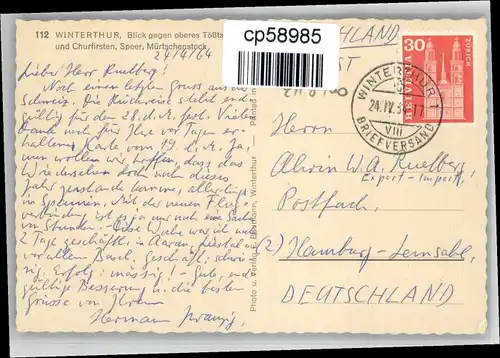 112 WINTERTHUR, Blick gegen oberes Tößta
und Churfirsten, Speer, Mürtschenstock
24/4/64
cp58985
Liebe Herr Ruelberg!
Noch einen letzten Gruss aus der
Schweiz. Die Rückreise steht end-
gültig für den 28.d.M. fest. Vielen
Dank noch für Ihre vor Tagen er-
haltene Karte vom 19.d.M. Ja,
nun wollen wir hoffen, dass das
Wiedersehen doch noch dieses
Jahr zustande komme, allerdings
in Spanien. Mit der neuen Flug-
verbindung ist es ja nur noch eine Sache
von Stunden. - Diese Woche war ich noch
2 Tage geschäftl. in Aarau, Liestal und
vor allem Basel. Geschäftl. schwie-
rig. Erfolg: mässig! - Gute, end-
gültige Besserung und die besten
Grüsse von Ihrem
Hermann
Photo u. Verlag Winterthur — Printed in
DEUTSCHLAND
ST
30
HELVETIA
ZÜRICH
WINTERTHUR 1
24.IV.64-17
VIII
BRIEFVERSAND
Herrn
Alwin W.A. Ruelberg,
Export-Import,
Postfach,
(2) Hamburg-Lemsahl
DEUTSCHLAND